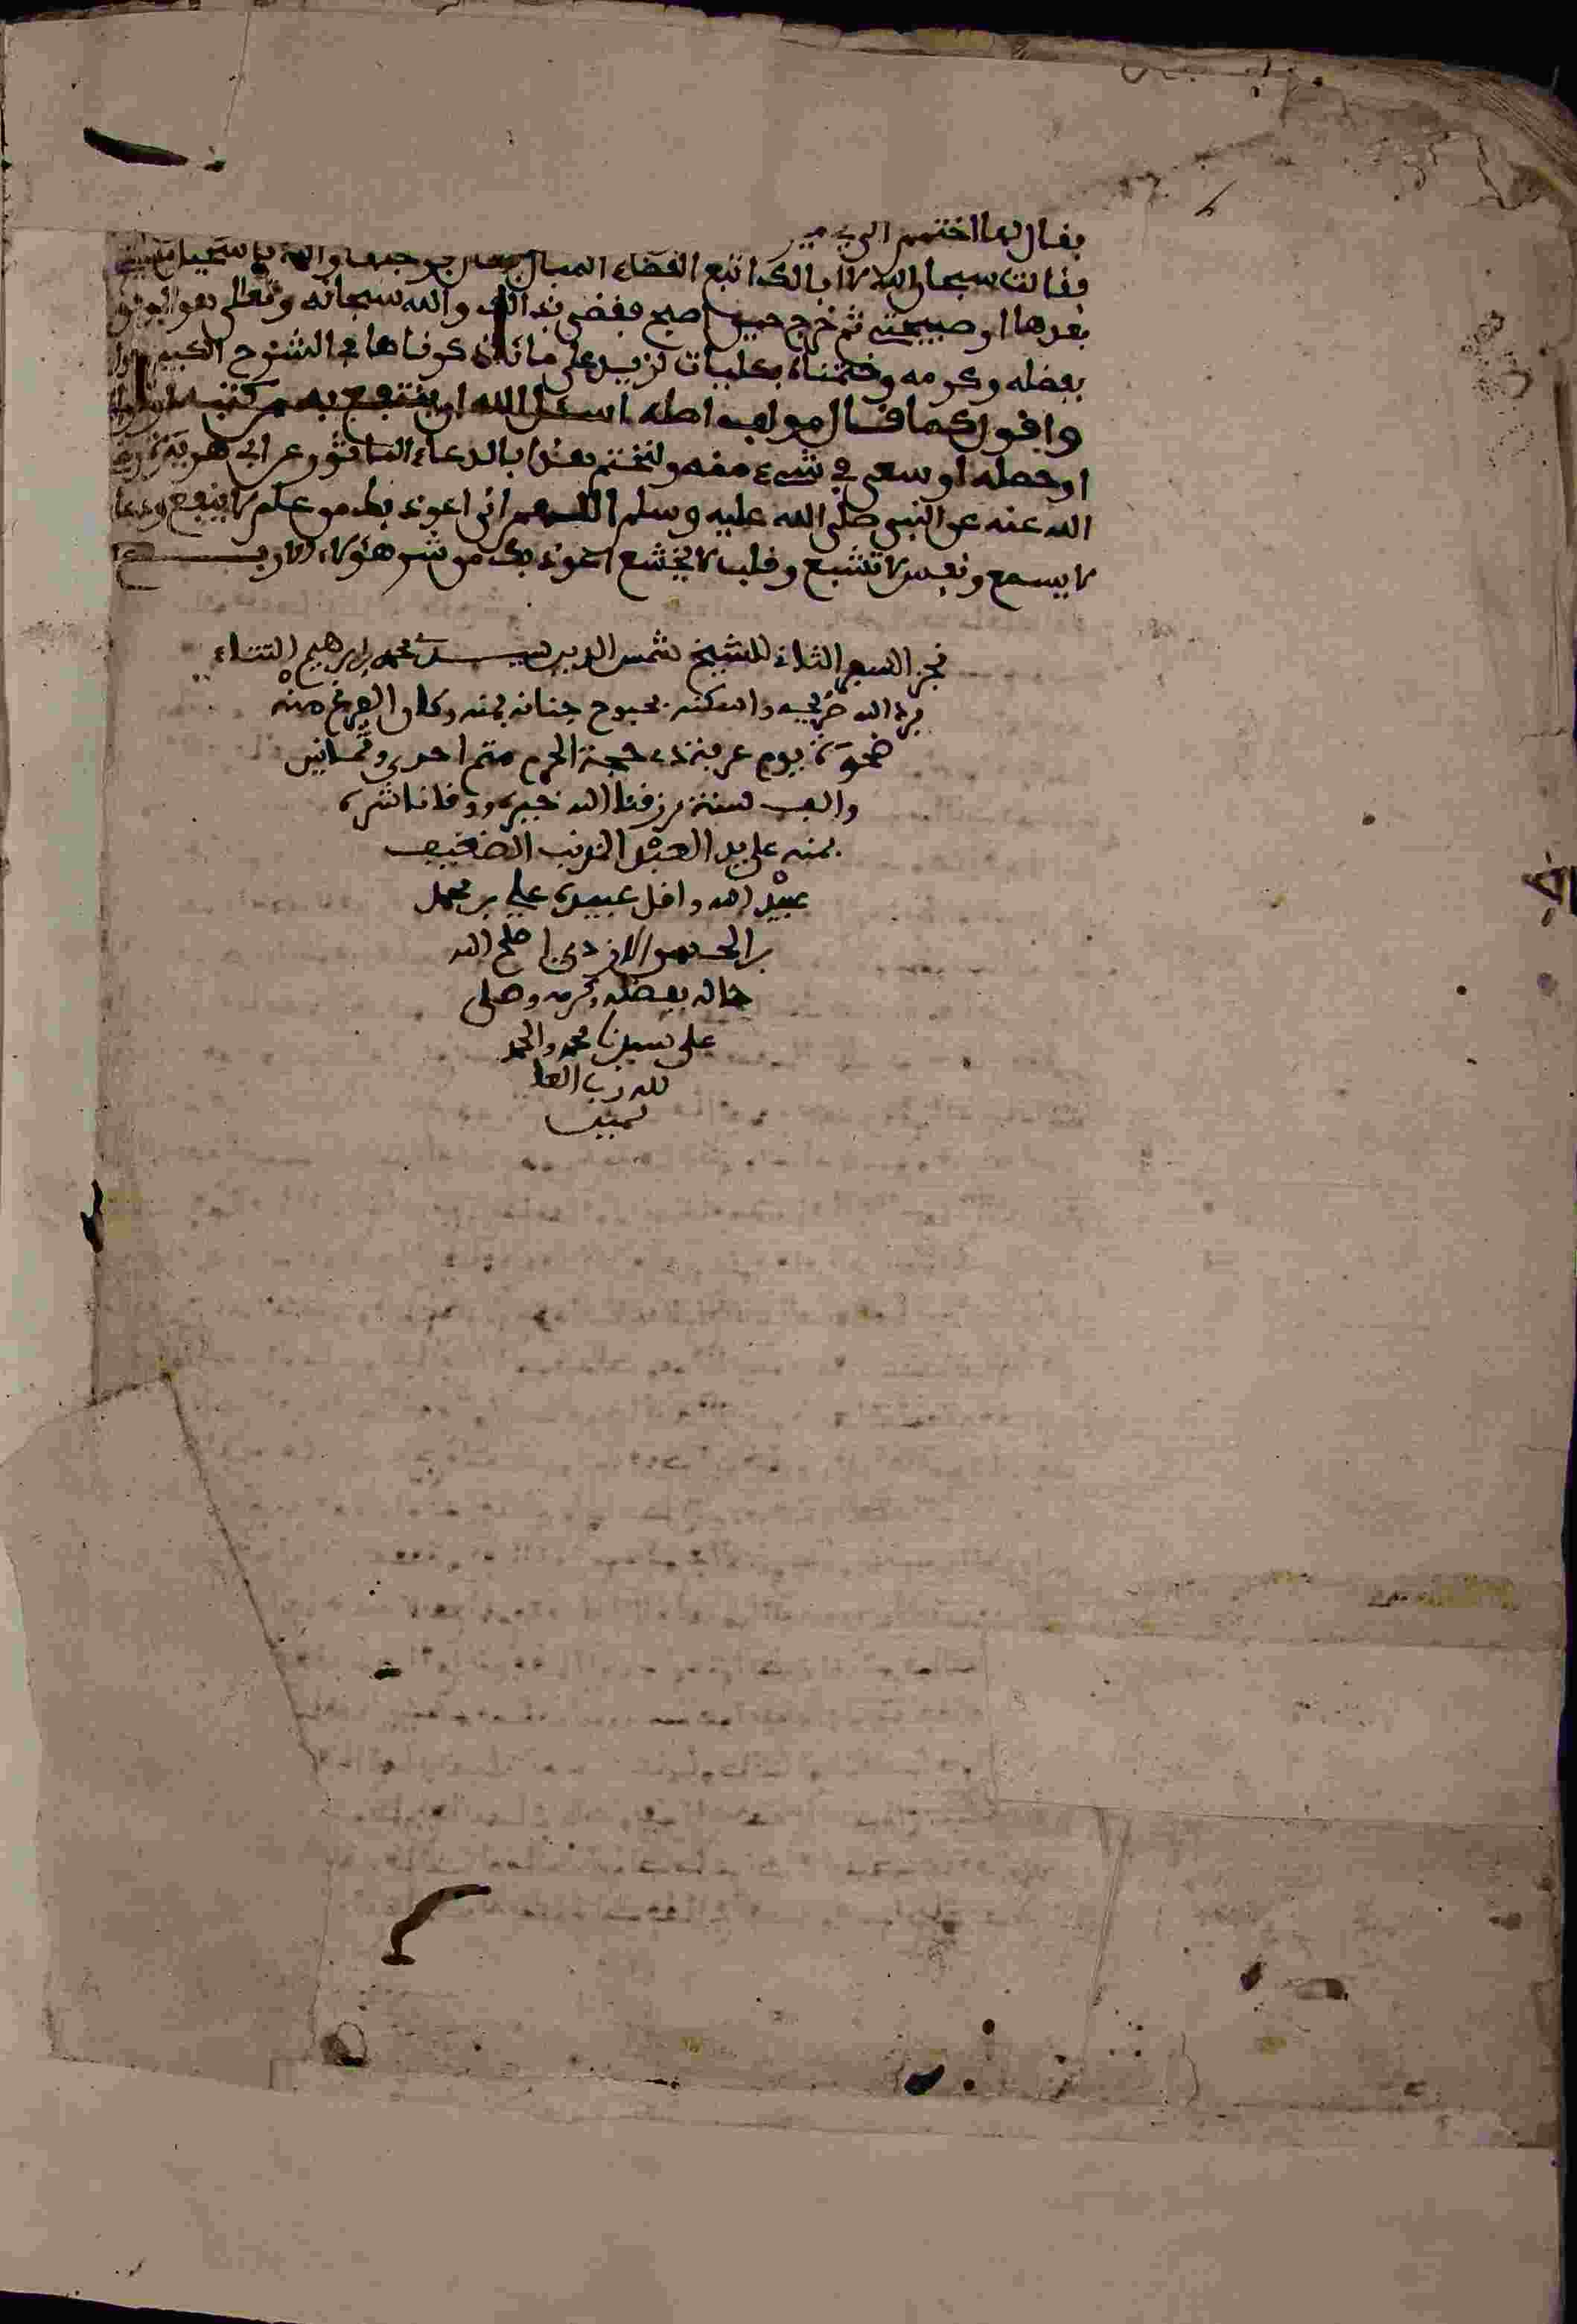 فقال لها اختصم الى
فقالت سبحان الله لا ابا لك اتبع القضاء المبال
بعدها او صبيحته ثم خرج حين اصبح فقضى بذالك والله سبحانه وتعالى هو الموفق
بفضله وكرمه وختمناه بكليات تزيد على مائة ذكرناها في الشرح الكبير
واقول كما قال مولف اصله اسئل الله ان ينفع به من كتبه او قراه
او حصله او سعى في شيء منه ولنختم هذا بالدعاء الماثور عن ابي هريرة رضي
الله عنه عن النبي صلى الله عليه وسلم اللهم اني اعوذ بك من علم لا ينفع ودعا
لا يسمع ونفس لا تشبع وقلب لا يخشع اعوذ بك من شر هؤلاء الاربع
نجز السفر الثالث للشيخ شمس الدين سيدي محمد بن ابرهيم التتاءي
برد الله ضريحه واسكنه بحبوح جنانه بمنه وكان الفرغ منه
ضحوة يوم عرفة ذي حجة الحرم متم احدى وثمانين
والف سنة رزقنا الله خيره ووقانا شره
بمنه على يد العبد المذنب الضعيف
عبيد الله واقل عبيده علي بن محمد
بن الحسن اصلح الله
حاله بفضله وكرمه وصلى
على سيدنا محمد والحمد
لله رب العا
لمين